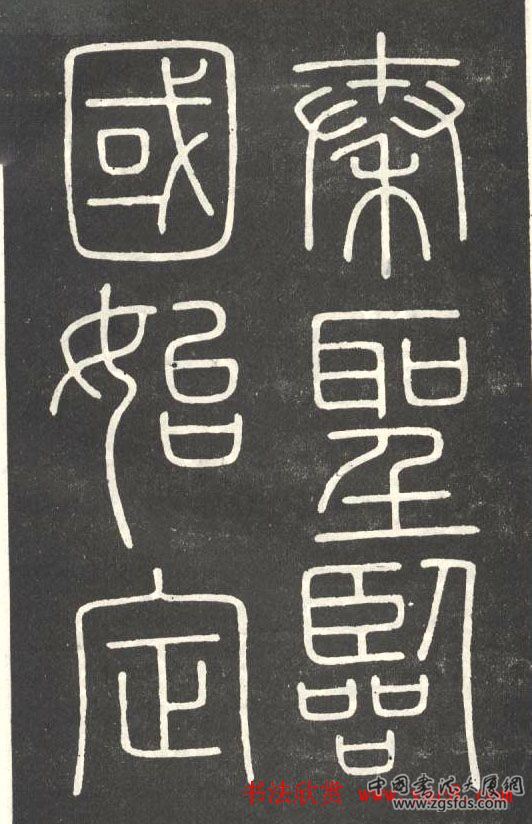 秦聖臨
國始定
书法欣赏 www.
中国书法大展网
www.zgsfds.com